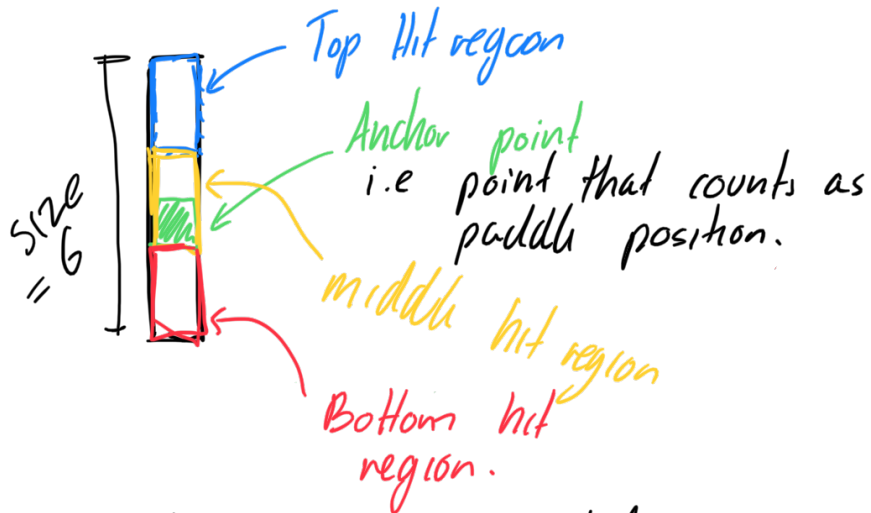 Top Hit region
Anchor point
i.e point that counts as
paddle position.
size
= 6
middle hit region
Bottom hit
region.